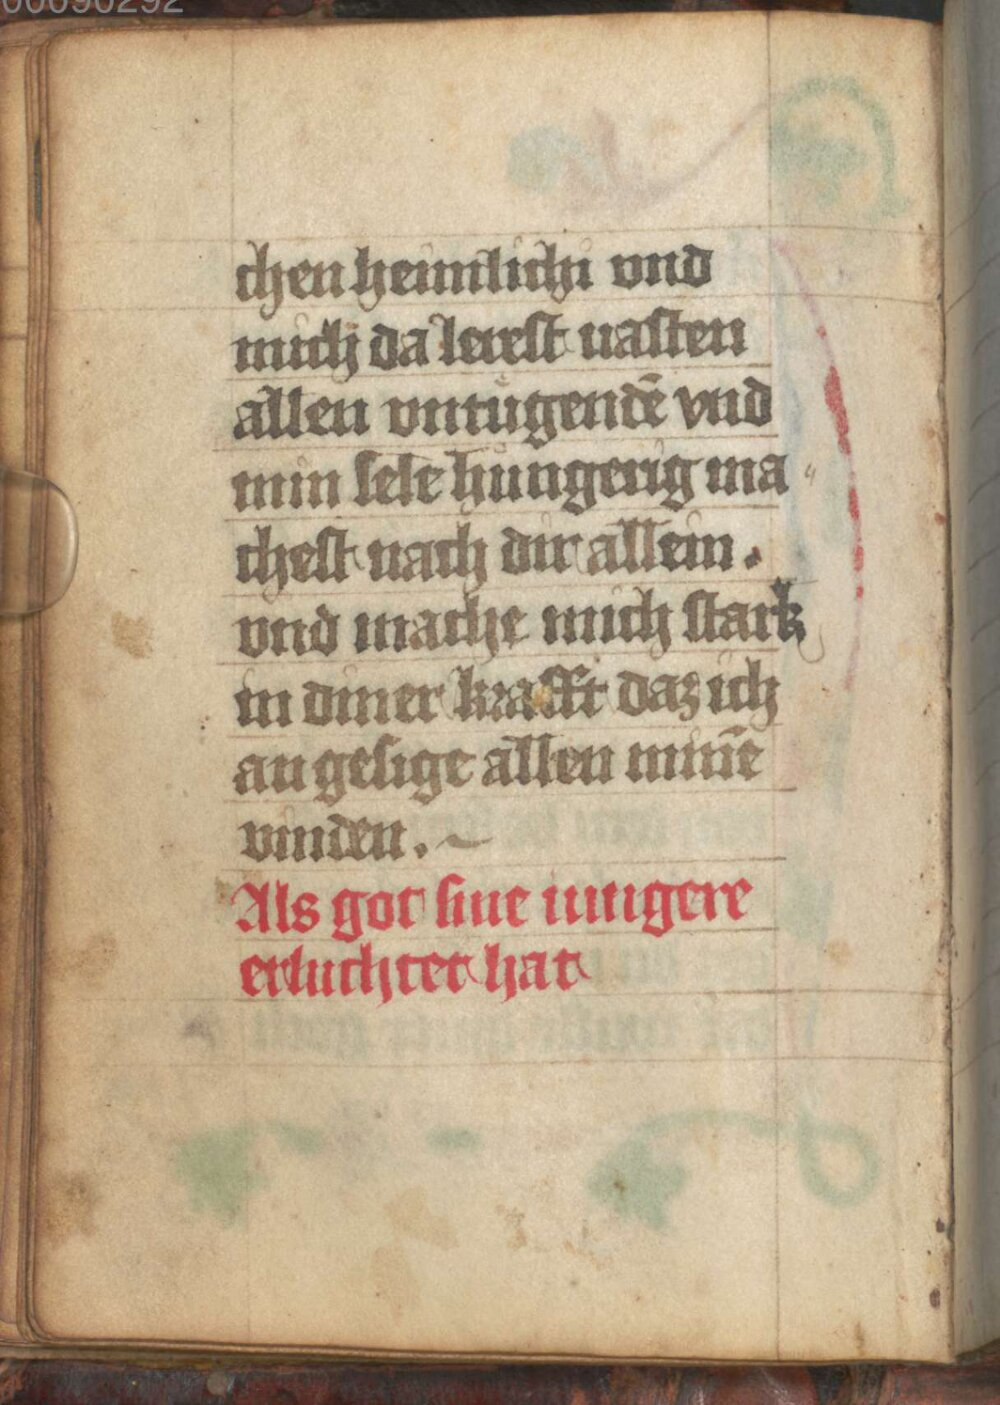 00090292
chen heimlichi vnd
mich da lerest uasten
allen vntugendē vnd
min sele hungerig ma
chest nach dir allein.
vnd mache mich stark
in diner krafft daz ich
an gesige allen minē
vinden. ~
Als got sine iungere
erluchtet hat